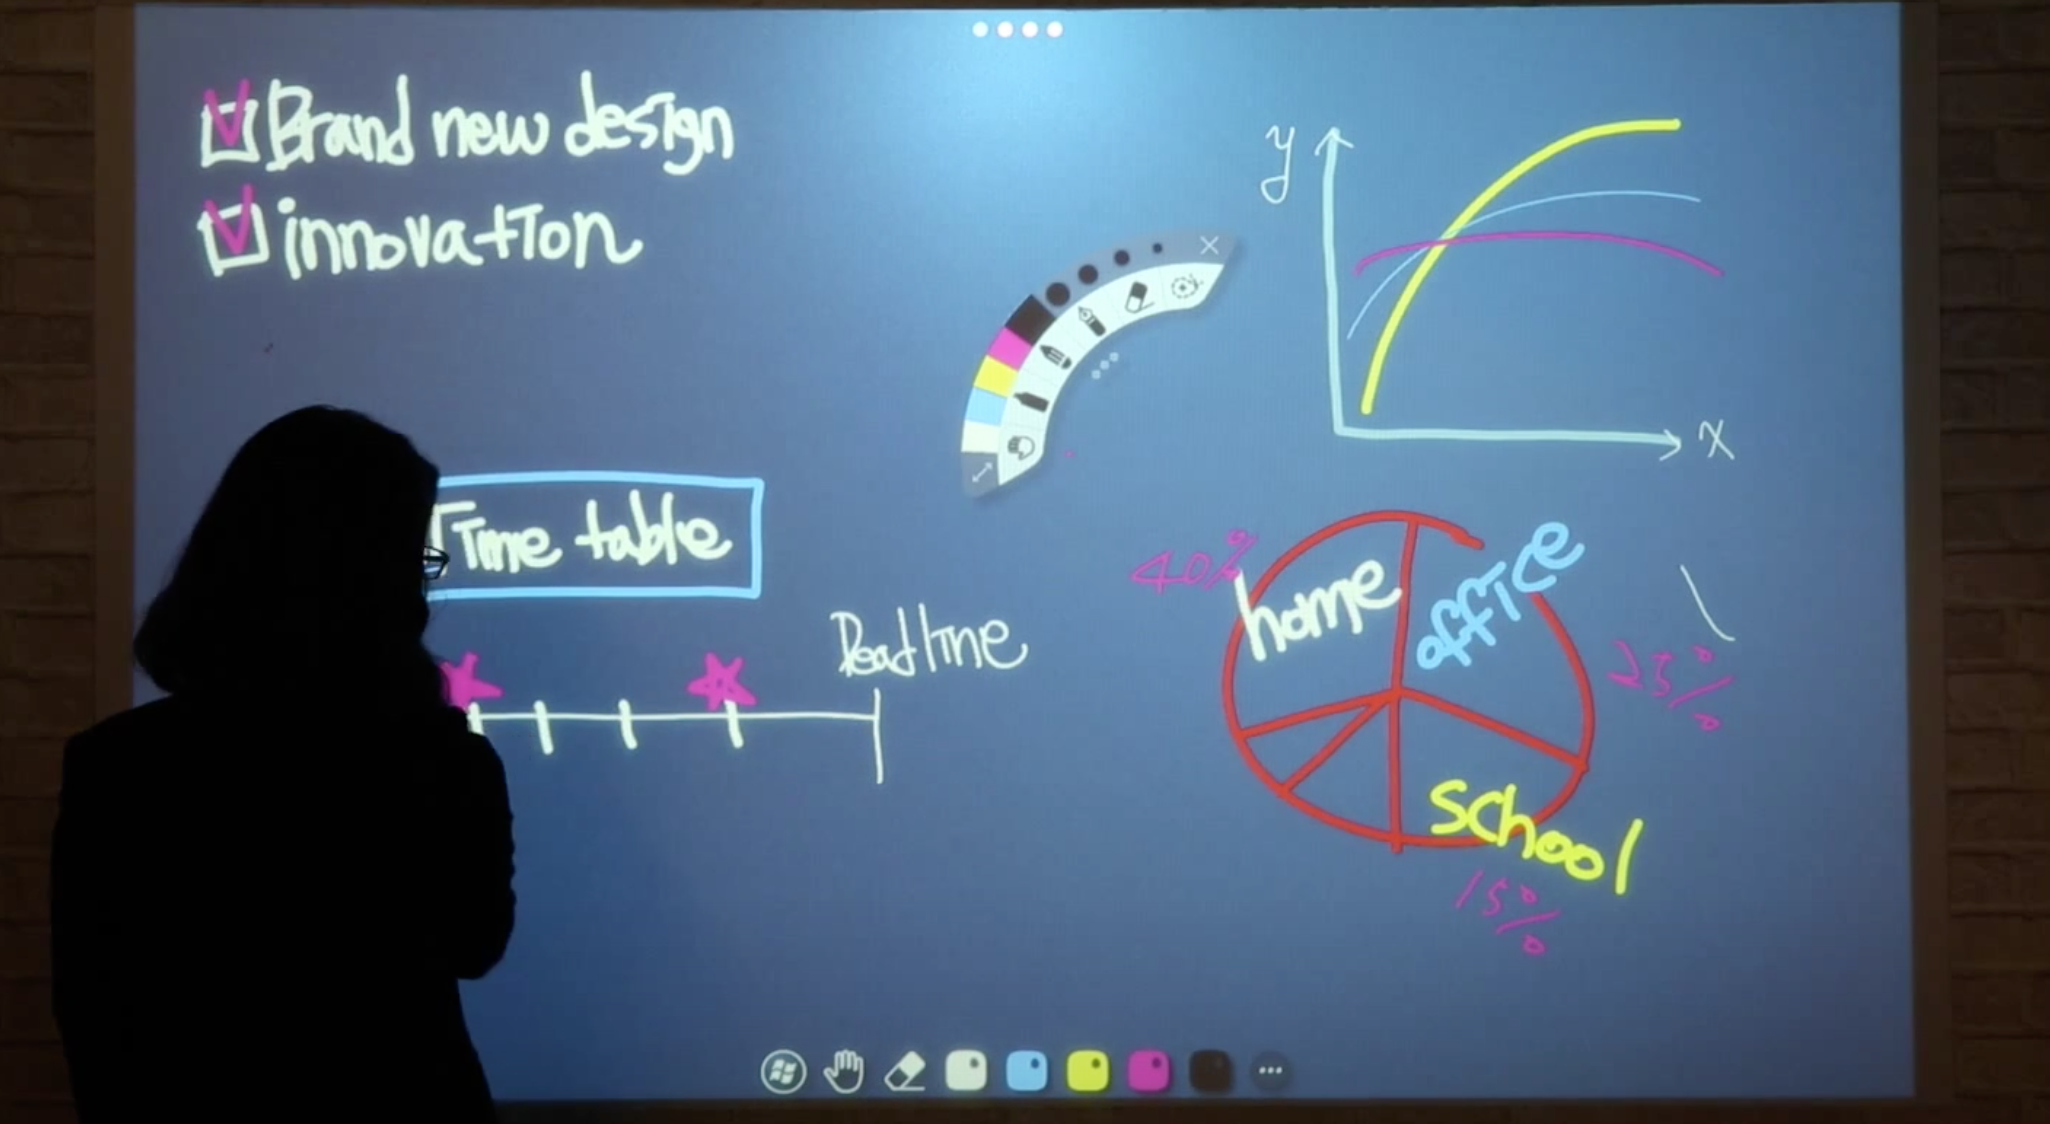 Brand new design
innovation
y
x
Time table
Deadline
40%
home
office
25%
school
15%